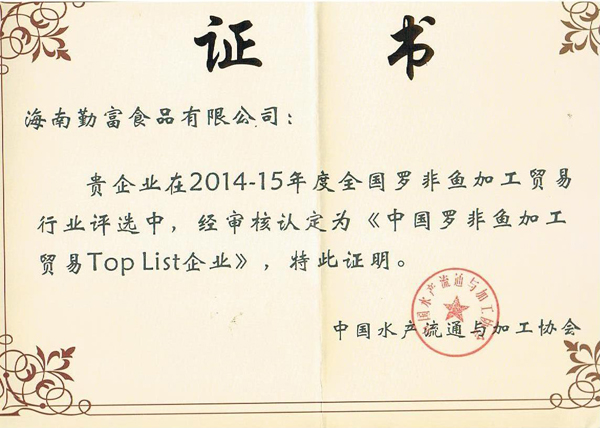 证 书
海南勤富食品有限公司：
贵企业在2014-15年度全国罗非鱼加工贸易
行业评选中，经审核认定为《中国罗非鱼加工
贸易Top List企业》，特此证明。
中国水产流通与加工协会
中国水产流通与加工协会